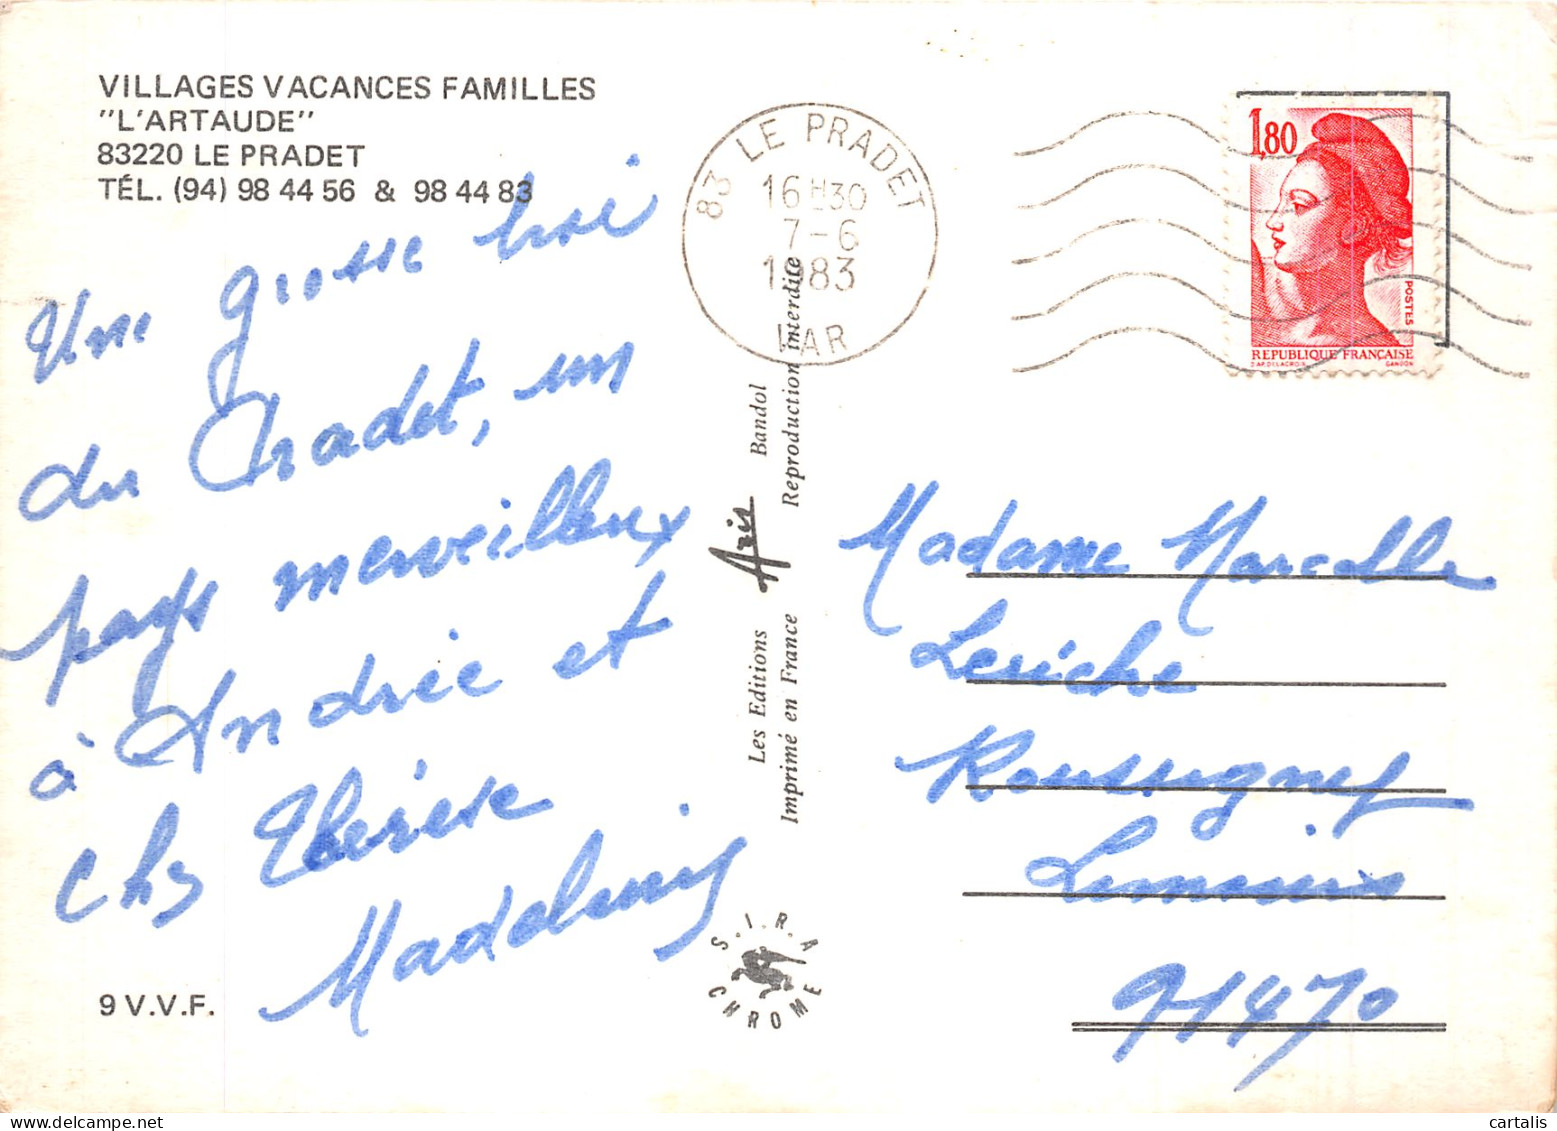 VILLAGES VACANCES FAMILLES
"L'ARTAUDE"
83220 LE PRADET
TÉL. (94) 98 44 56 & 98 44 83
Une grosse bise
du Pradet, un
pays merveilleux
à Andrée et
chez Thérèse
9 V.V.F.
83 LE PRADET
16H30
7-6
1983
VAR
Les Editions Aris Bandol
Imprimé en France Reproduction interdite
S.I.R.A
CHROME
1,80
POSTES
REPUBLIQUE FRANÇAISE
D'AP. DELACROIX GANDON
Madame Marcelle
Leriche
Roussigny
Limours
91470
cartalis